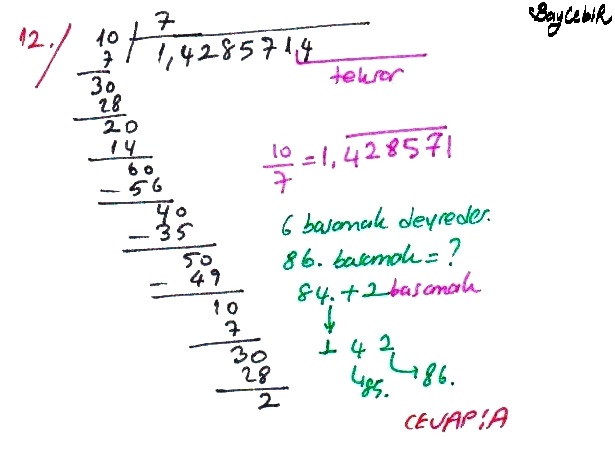 BayCebiR
12./ 10 | 7
7 1,4285714
30 tekrar
28
20
14
60
- 56
40
- 35
50
- 49
10
7
30
28
2
10/7 = 1,428571
6 basamak devreder.
86. basamak = ?
84. + 2 basamak
↓
1 4 2
↳85. ↳86.
CEVAP: A